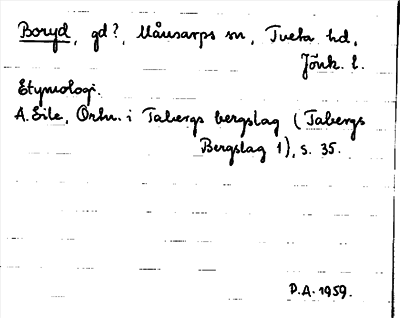 Boryd, gd?, Månsarps sn, Tveta hd,
Jönk. l.
Etymologi.
A. Eile, Ortn. i Tabergs bergslag (Tabergs
Bergslag 1), s. 35.
P.A. 1959.